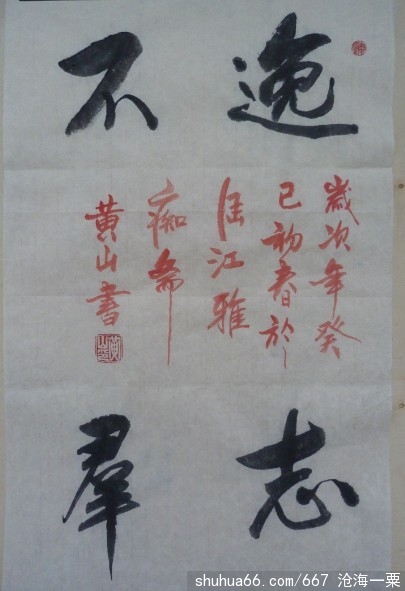 逸志
不羣
歲次年癸
巳初春於
江雅
痴斋
黄山書
shuhua66.com/667 沧海一栗